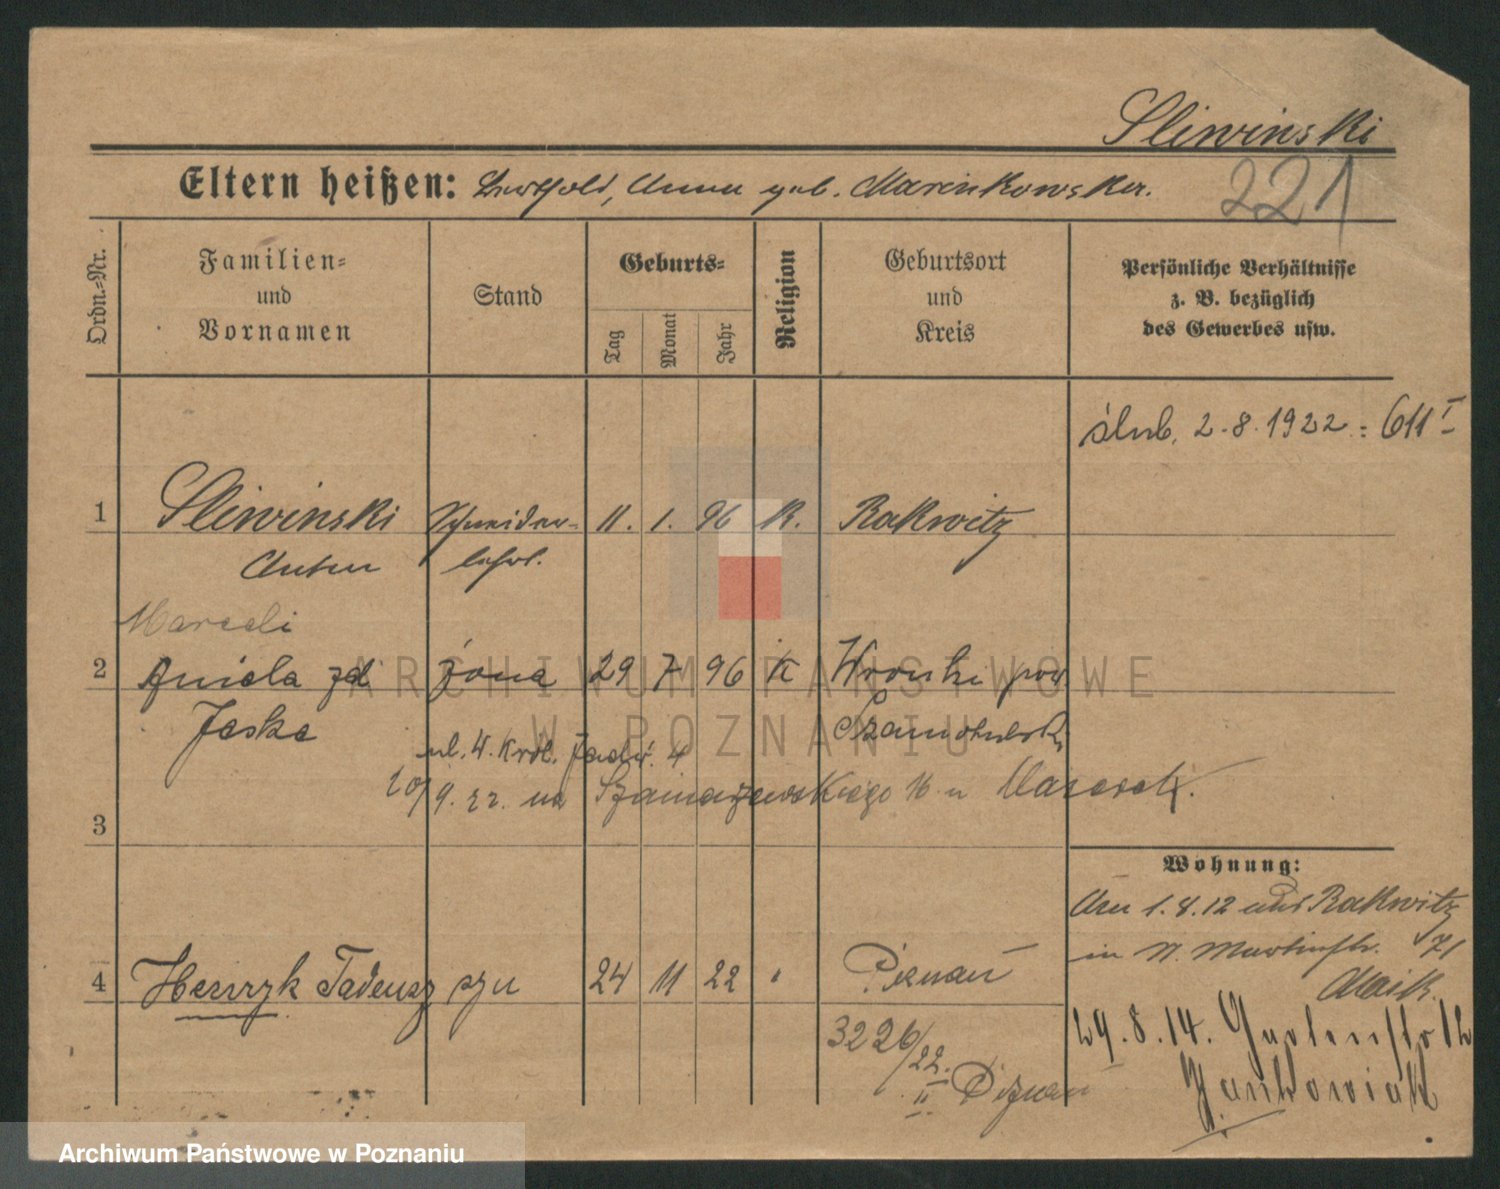 Sliwinski
221
Eltern heißen: Leopold, Anna geb. Marcinkowska.
Ordn.-Nr.
Familien- und Vornamen
Stand
Geburts-
Tag
Monat
Jahr
Religion
Geburtsort und Kreis
Persönliche Verhältnisse
z. B. bezüglich
des Gewerbes usw.
ślub. 2.8.1922 = 611 I
1 Sliwinski Schneider- 11. 1. 96 K. Rakwitz
Anton lehrl.
Marceli
2 Aniela zd żona 29 7 96 K Wronki pow.
Jaska Szamotulski
ul. W. Król. Jadw. 4
20/9. 22. na Szamarzewskiego 16 u
3
Wohnung:
Am 1.8.12 aus Rakwitz
in St. Martinstr. 71
4 Henryk Tadeusz syn 24 11 22 " Poznań
3226/22
II Poznań
29.8.14. Gartenstr 12
Jankowiak
ARCHIWUM PAŃSTWOWE
W POZNANIU
Archiwum Państwowe w Poznaniu